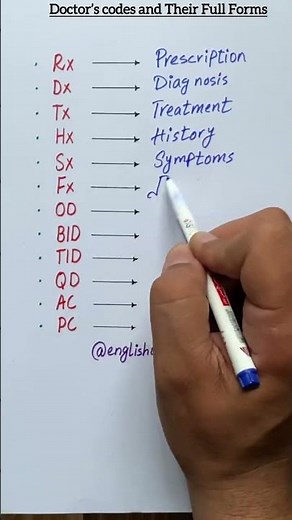 Doctor's codes and Their Full Forms
Rx Prescription
Dx Diagnosis
Tx Treatment
Hx History
Sx Symptoms
Fx
OD
BID
TID
QD
AC
PC